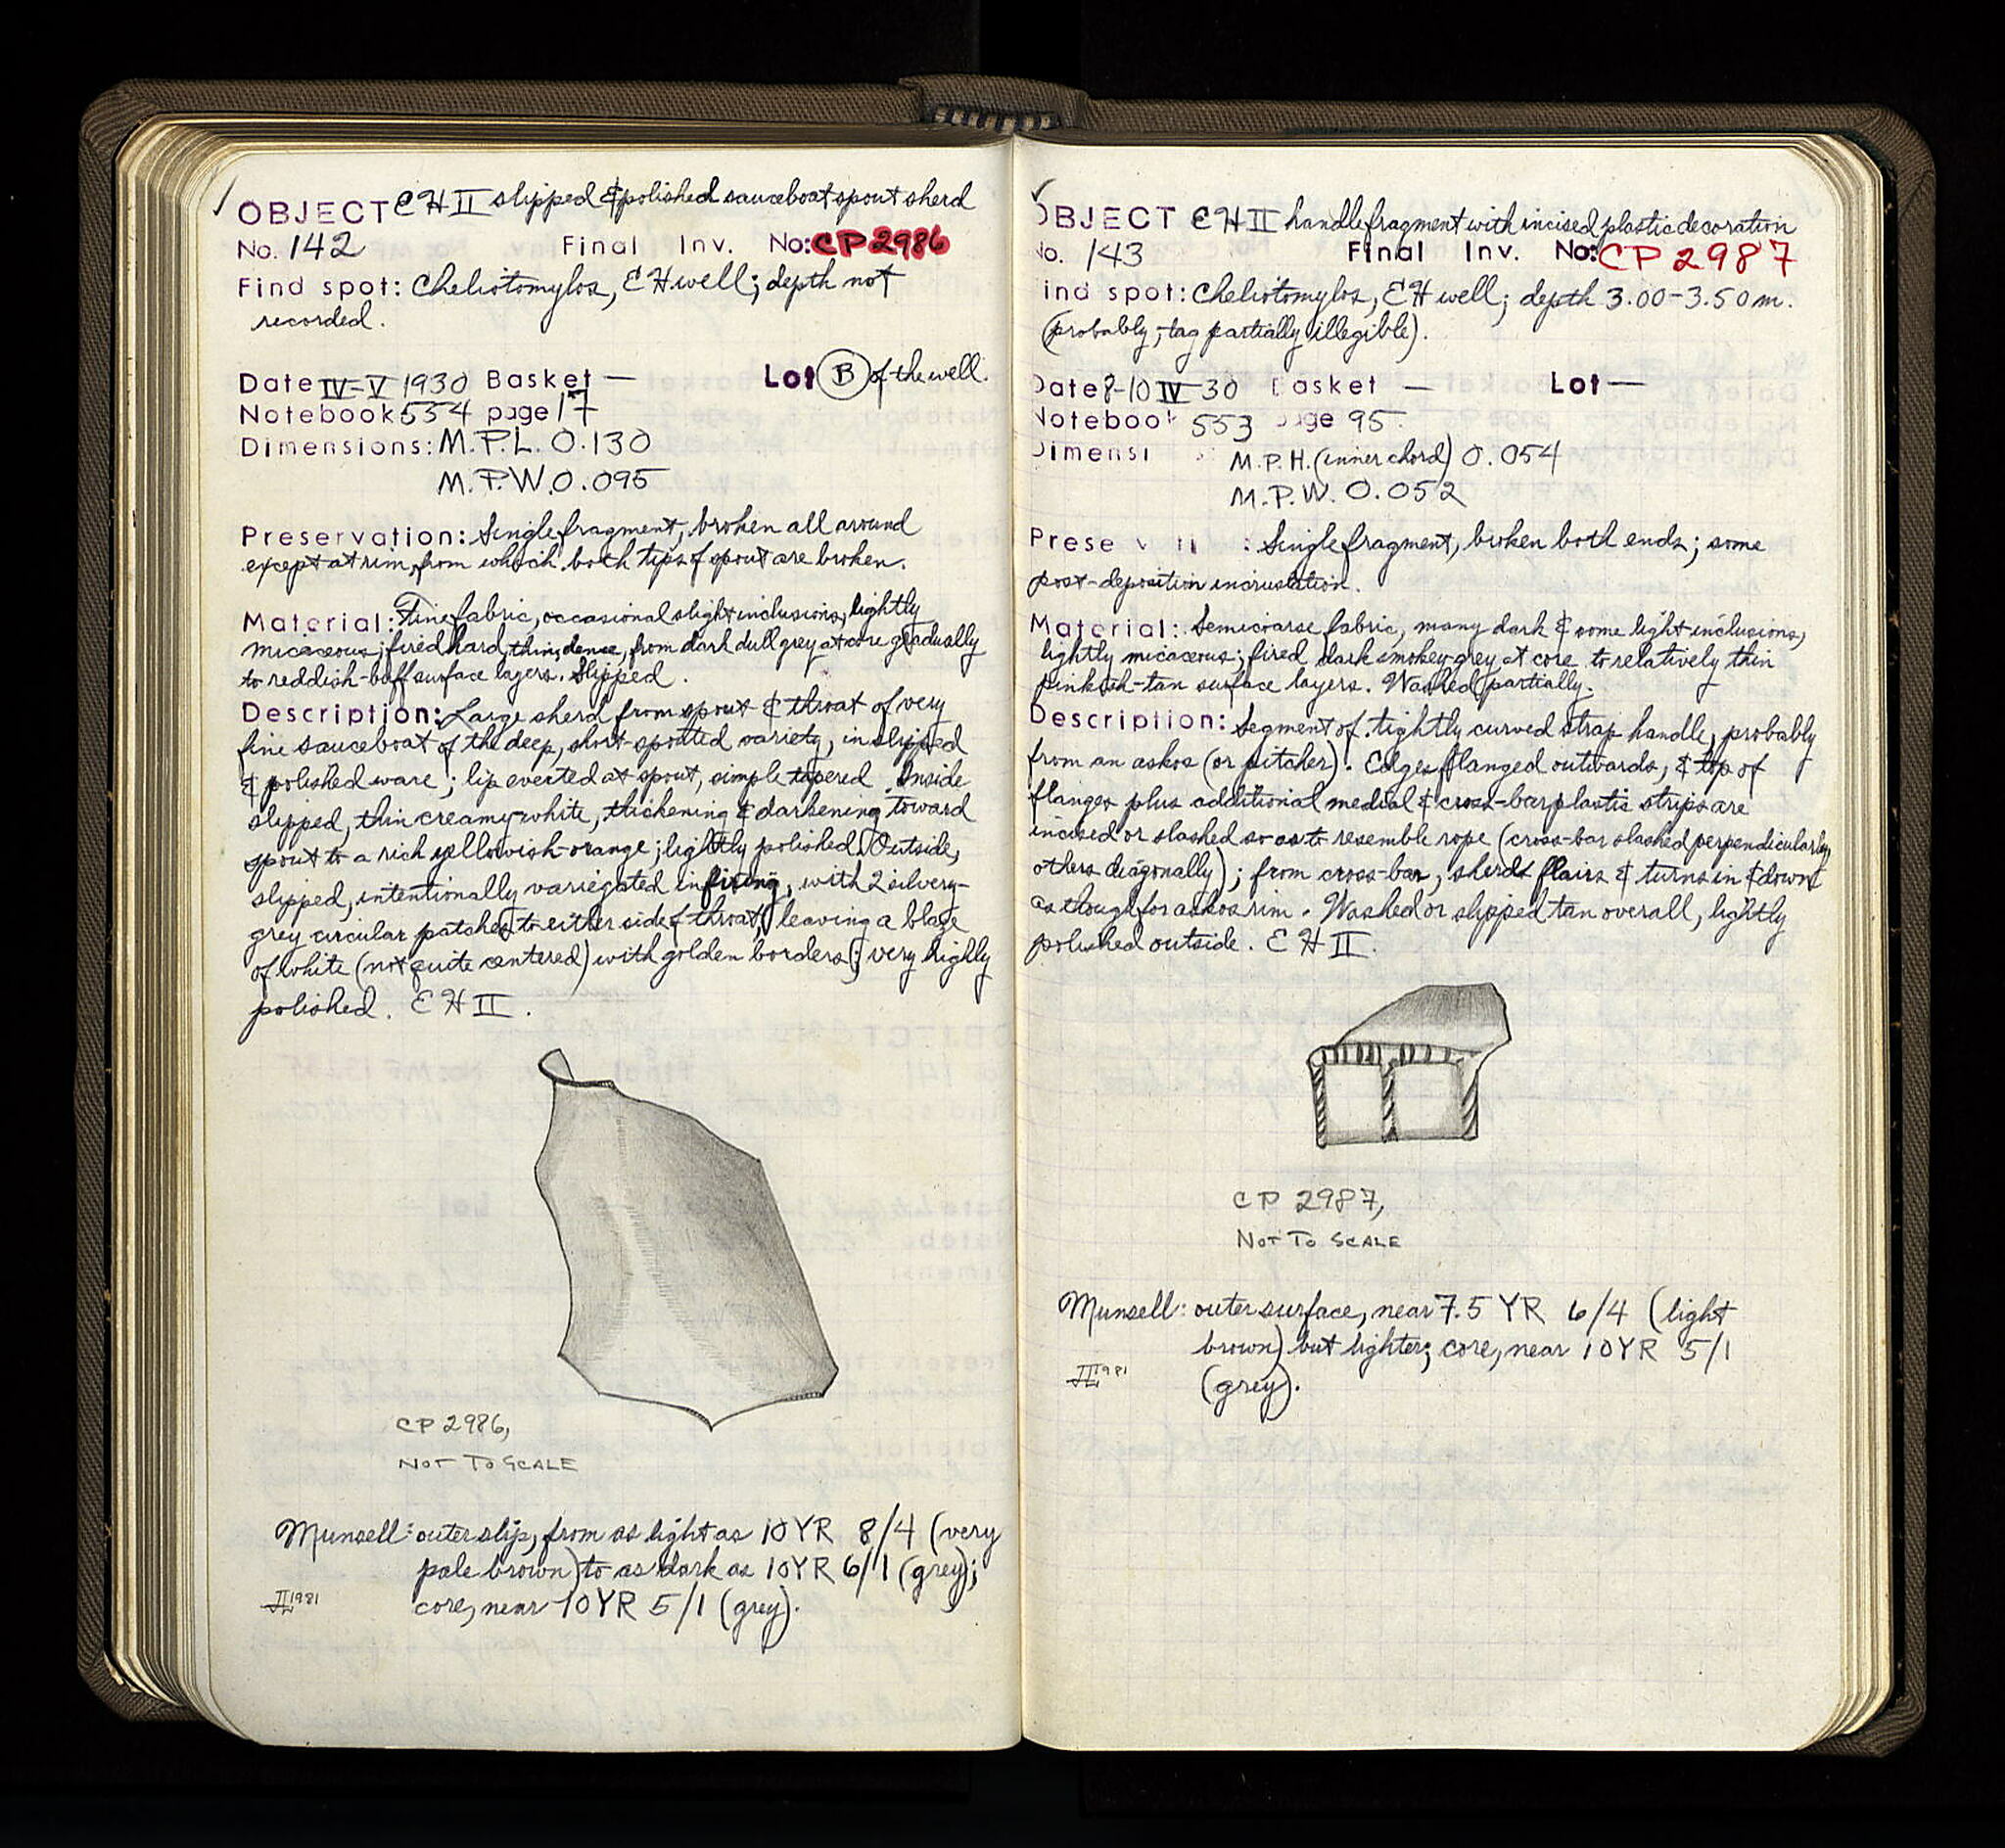 OBJECT EH II slipped & polished sauceboat spout sherd
No. 142 Final Inv. No: CP 2986
Find spot: Cheliotomylos, EH well; depth not
recorded.
Date IV-V 1930 Basket — Lot B of the well.
Notebook 554 page 17
Dimensions: M.P.L. 0.130
M.P.W. 0.095
Preservation: Single fragment, broken all around
except at rim, from which both tips of spout are broken.
Material: Fine fabric, occasional slight inclusions, lightly
micaceous; fired hard, thin, dense, from dark dull grey at core gradually
to reddish-buff surface layers. Slipped.
Description: Large sherd from spout & throat of very
fine sauceboat of the deep, short-spouted variety, in slipped
& polished ware; lip everted at spout, simple tapered. Inside
slipped, thin creamy-white, thickening & darkening toward
spout to a rich yellowish-orange; lightly polished. Outside,
slipped, intentionally variegated in firing, with 2 silvery-
grey circular patches to either side of throat, leaving a blaze
of white (not quite centered) with golden borders; very highly
polished. EH II.
CP 2986,
NOT TO SCALE
Munsell: outer slip, from as light as 10YR 8/4 (very
pale brown) to as dark as 10YR 6/1 (grey);
II 1981
core, near 10YR 5/1 (grey).
OBJECT EH II handle fragment with incised plastic decoration
No. 143 Final Inv. No: CP 2987
ind spot: Cheliotomylos, EH well; depth 3.00-3.50m.
(probably; tag partially illegible).
Date 8-10 IV 30 asket — Lot —
Notebook 553 age 95
Dimensi M.P.H. (inner chord) 0.054
M.P.W. 0.052
Prese v : Single fragment, broken both ends; some
post-deposition incrustation.
Material: Semicoarse fabric, many dark & some light inclusions,
lightly micaceous; fired dark smokey-grey at core to relatively thin
pinkish-tan surface layers. Washed partially.
Description: Segment of tightly curved strap handle, probably
from an askos (or pitcher). Edges flanged outwards, & top of
flanges plus additional medial & cross-bar plastic strips are
incised or slashed so as to resemble rope (cross-bar slashed perpendicularly,
others diagonally); from cross-bar, sherd flairs & turns in & down
as though for askos rim. Washed or slipped tan overall, lightly
polished outside. EH II.
CP 2987,
NOT TO SCALE
Munsell: outer surface, near 7.5 YR 6/4 (light
brown) but lighter; core, near 10YR 5/1
1981
(grey).